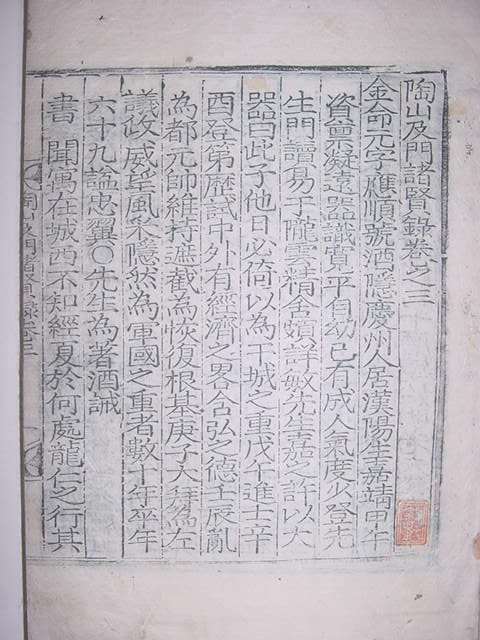 陶山及門諸賢錄卷之三
金命元字應順號酒隱慶州人居漢陽生嘉靖甲午
資稟凝遠器識寬平自幼已有成人氣度少登先
生門讀易于隴雲精舍頗詳敏先生嘉之許以大
器曰此子他日必倚以為干城之重戊午進士辛
酉登第歷試中外有經濟之畧含弘之德壬辰亂
為都元帥維持遮截為恢復根基庚子大拜為左
議政威望風棨隱然為軍國之重者數十年卒年
六十九諡忠翼○先生為著酒誡
書 聞寓在城西不知經夏於何處龍仁之行其